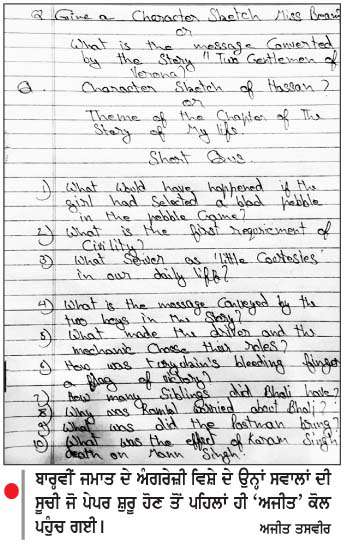 Q. Give a Character Sketch Miss Beam
or
What is the message Converted
by the Story " Two Gentlemen of
Verona?
Q. Character Sketch of Hassan?
or
Theme of the Chapter of The
Story of My life.
Short Qus.
1) What would have happened if the
girl had selected a blad pebble
in the pebble Game?
2) What is the first requriement of
Civility?
3) What Server as 'little Courtesies'
in our daily life?
4) What is the message Conveyed by the
two boys in the Story?
5) What made the driver and the
mechanic Chose their roles?
How was bleeding finger
a flag of victory?
7) How many Siblings did Bholi have?
8) Why was Ramlal Worried about Bholi?
9) What was did the Postman bring?
10) What was the effect of Karam Singh
death on Mann Singh?
ਬਾਰ੍ਹਵੀਂ ਜਮਾਤ ਦੇ ਅੰਗਰੇਜ਼ੀ ਵਿਸ਼ੇ ਦੇ ਉਨ੍ਹਾਂ ਸਵਾਲਾਂ ਦੀ
ਸੂਚੀ ਜੋ ਪੇਪਰ ਸ਼ੁਰੂ ਹੋਣ ਤੋਂ ਪਹਿਲਾਂ ਹੀ 'ਅਜੀਤ' ਕੋਲ
ਪਹੁੰਚ ਗਈ। ਅਜੀਤ ਤਸਵੀਰ